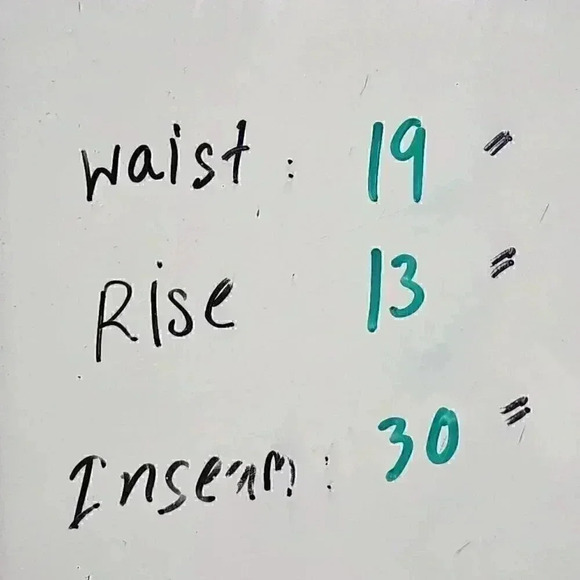 Waist: 19"
Rise 13"
Inseam: 30"